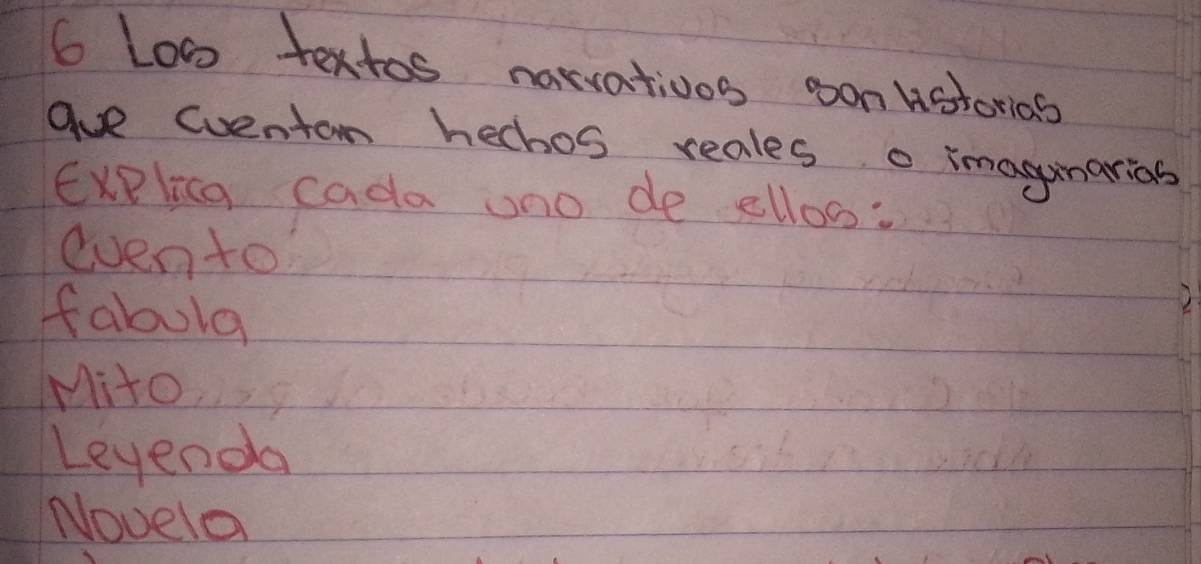 6 Los textos narrativos son historias
que cuentan hechos reales o imaginarias
Explica cada uno de ellos:
Cuento
fabula
Mito
Leyenda
Novela